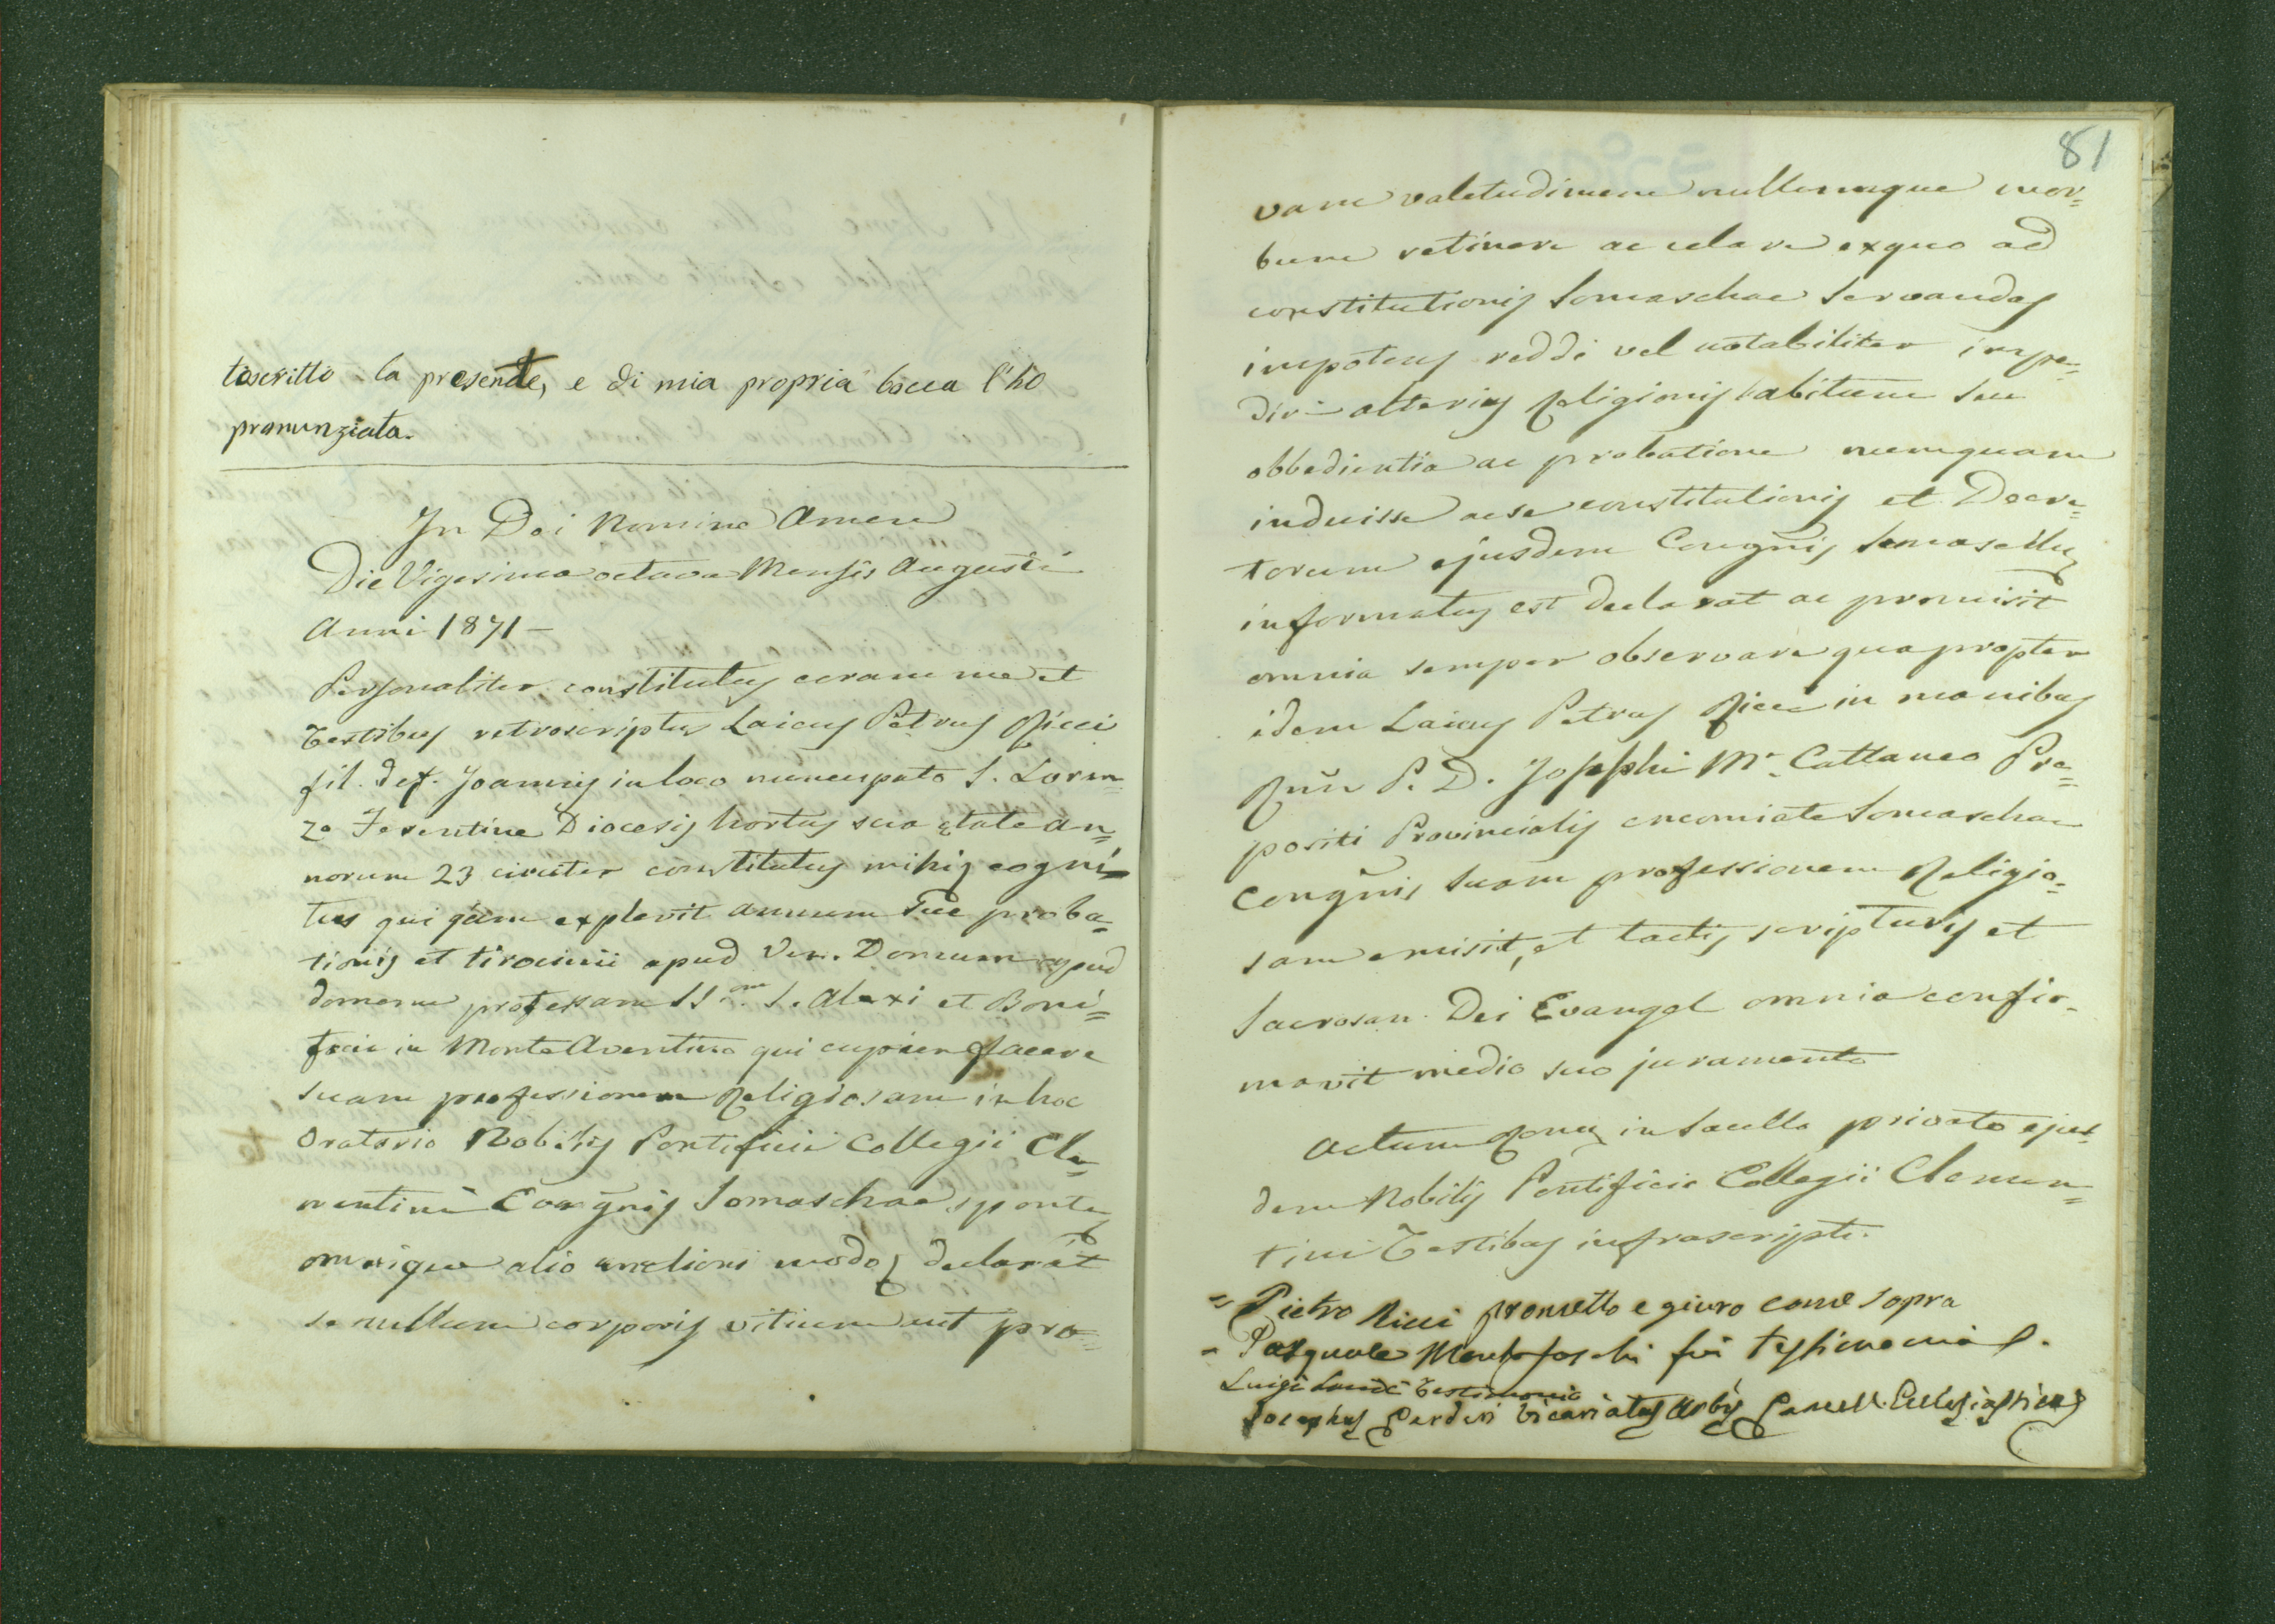 toscritto la presente, e di mia propria bocca l'ho
pronunziata.
In Dei Nomine Amen
Die Vigesima octava Mensis Augusti
Anni 1871 -
Personaliter constitutus coram me et
Testibus retroscriptis Laicus Petrus Ricci
fil. def. Joannis in loco nuncupato S. Loren=
zo Ferentine Diocesis hortus sua ętate an=
norum 23 circiter constitutus mihiq cogni=
tus qui jam explevit annum sue proba=
tionis et tirocinii apud Ven. Domum apud
domum professam SS.om S. Alexi et Boni=
facii in Monte Aventino qui cupien facere
suam professionem Religiosam in hoc
Oratorio Nobilis Pontificii Collegii Cle=
mentini Congñis Somaschae sponte
omnique alio meliori modo declarat
se nullum corporis vitium aut pra=
81
vam valetudinem nullumque mor=
bum retinere ac celare ex quo ad
constitutionis Somaschae servandas
impotens reddi vel notabiliter impe=
diri - alterius Religionis habitum seu
obbedientia ac probatione numquam
induisse ac se constitutionis et Decre=
torum ejusdem Congñis Somaschę
informatus est declarat ac promisit
omnia semper observare quapropter
idem Laicus Petrus Ricci in manibus
Rm̃i P. D. Josephi M.a Cattaneo Pre=
positi Provincialis encomiate Somaschae
Congñis suam professionem Religio=
sam emisit, et tactis scripturis et
Sacrosan. Dei Evangel omnia confir=
mavit medio suo juramento
Actum Romę in Sacello privato ejus=
dem Nobilis Pontificii Collegii Clemen=
tini Testibus infrascripti.
= Pietro Ricci prometto e giuro come sopra
= Pasquale fui testimonio
Luigi testimonio
Josephus Vicariatus Urbis Cancell. Ecclesiasticus